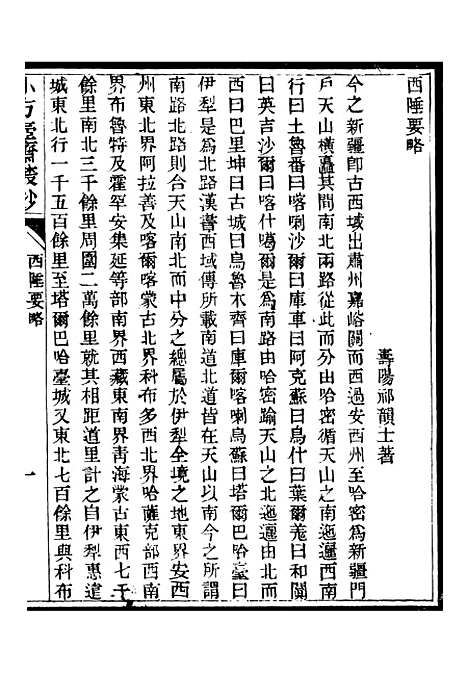 西陲要略
壽陽祁韻士著
今之新疆卽古西域出肅州嘉峪關而西過安西州至哈密爲新疆門
戶天山橫矗其間南北兩路從此而分由哈密循天山之南迤邐西南
行曰土魯番曰喀喇沙爾曰庫車曰阿克蘇曰烏什曰葉爾羌曰和闐
曰英吉沙爾曰喀什噶爾是爲南路由哈密踰天山之北迤邐由北而
西曰巴里坤曰古城曰烏魯木齊曰庫爾喀喇烏蘇曰塔爾巴哈臺曰
伊犁是爲北路漢書西域傳所載南道北道在天山以南今之所謂
南路北路則合天山南北而中分之總屬於伊犁全境之地東界安西
州東北界阿拉善及喀爾喀蒙古北界科布多西北界哈薩克部西南
界布魯特及霍罕安集延等部南界西藏東南界青海蒙古東西七千
餘里南北三千餘里周圍二萬餘里就其相距道里計之自伊犁惠遠
城東北行一千五百餘里至塔爾巴哈臺城又東北七百餘里與科布
小方壺齋叢鈔
西陲要略
一